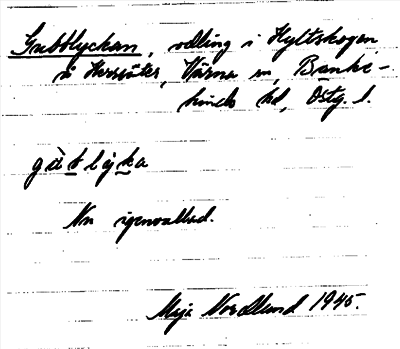 Gubblyckan, odling i Hyltskogen
vi Herrsäter, Värna sn, Banke-
kinds hd, Östg. l.
gùblỳka
Nu igenvallad.
Maja Nordlund 1945.